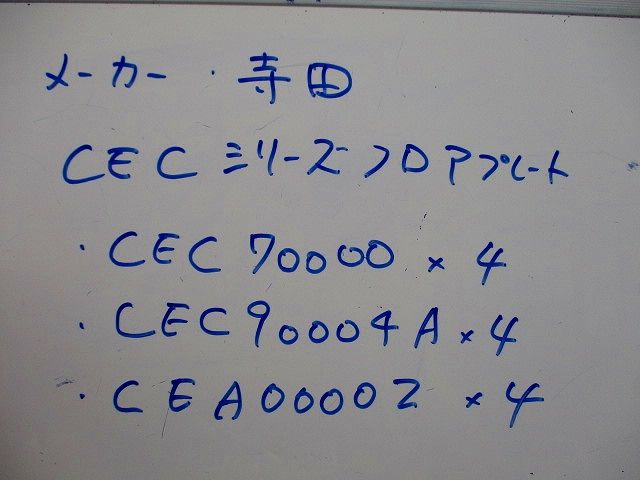 メーカー・寺田
CECシリーズフロアプレート
・CEC70000×4
・CEC90004A×4
・CEA00002×4